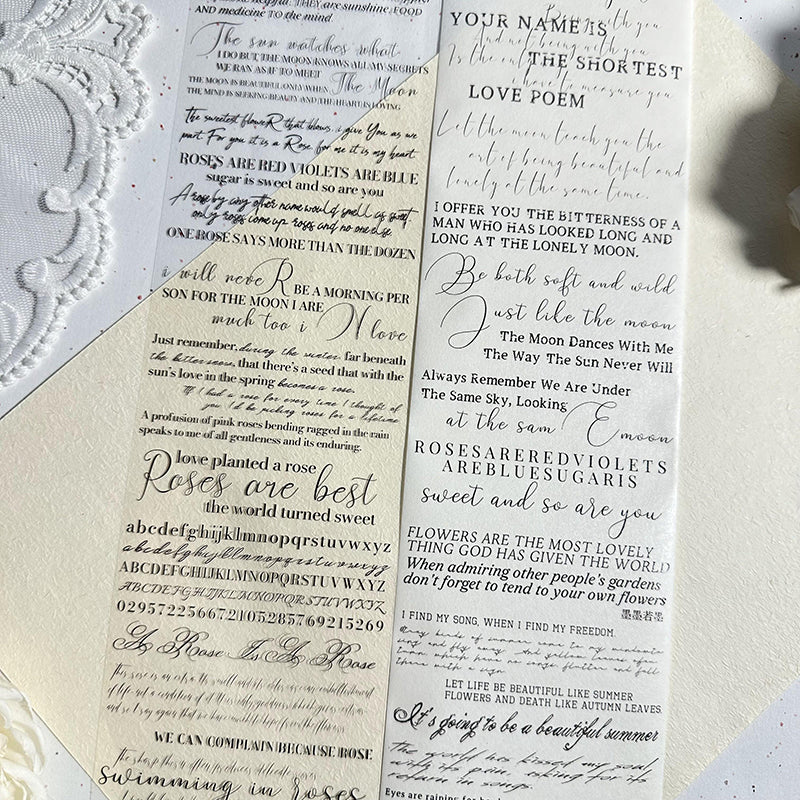 helpful. THEY are sunshine, FOOD
AND medicine TO the mind.
The sun watches what
I DO BUT THE MOON KNOWS ALL MY SECRETS
WE RAN AS IF TO MEET The Moon
THE MOON IS BEAUTIFUL ONLY WHEN
THE MIND IS SEEKING BEAUTY AND THE HEART IS LOVING
The sweetest floweR that blows, i give You as we
part. For you it is a Rose, for me it is my heart.
ROSES ARE RED VIOLETS ARE BLUE
sugar is sweet and so are you
A rose by any other name would smell as sweet.
only roses come up roses and no one else
ONE ROSE SAYS MORE THAN THE DOZEN
i will neve R BE A MORNING PER
SON FOR THE MOON I ARE
much too i N love
Just remember, during the winter, far beneath
the bitter snow, that there's a seed that with the
sun's love in the spring becomes a rose.
If i had a rose for every time I thought of
you, I'd be picking roses for a lifetime
A profusion of pink roses bending ragged in the rain
speaks to me of all gentleness and its enduring.
love planted a rose
Roses are best
the world turned sweet
abcdefghijklmnopqrstuvwxyz
abcdefghijklmnopqrstuvwxyz
ABCDEFGHIJKLMNOPQRSTUVWXYZ
ABCDEFGHIJKLMNOPQRSTUVWXYZ
02957225667210528576921 5269
A Rose Is A Rose
WE CAN COMPLAIN BECAUSE ROSE
swimming in roses
Being with you
YOUR NAME IS
And not being with you
Is the only
THE SHORTEST
i have to measure you
LOVE POEM
Let the moon teach you the
art of being beautiful and
lonely at the same time.
I OFFER YOU THE BITTERNESS OF A
MAN WHO HAS LOOKED LONG AND
LONG AT THE LONELY MOON.
Be both soft and wild
Just like the moon
The Moon Dances With Me
The Way The Sun Never Will
Always Remember We Are Under
The Same Sky, Looking
at the sam E moon
ROSESAREREDVIOLETS
AREBLUESUGARIS
sweet and so are you
FLOWERS ARE THE MOST LOVELY
THING GOD HAS GIVEN THE WORLD
When admiring other people's gardens
don't forget to tend to your own flowers
墨墨若墨
I FIND MY SONG, WHEN I FIND MY FREEDOM.
Stray birds of summer come to my windowto
sing and fly away. And yellow leaves of
tumn, which have no songs flutter and fall
there with a sign.
LET LIFE BE BEAUTIFUL LIKE SUMMER
FLOWERS AND DEATH LIKE AUTUMN LEAVES.
It's going to be a beautiful summer
The world has kissed my soul
with its pain, asking for its
return in songs.
Eyes are raining for